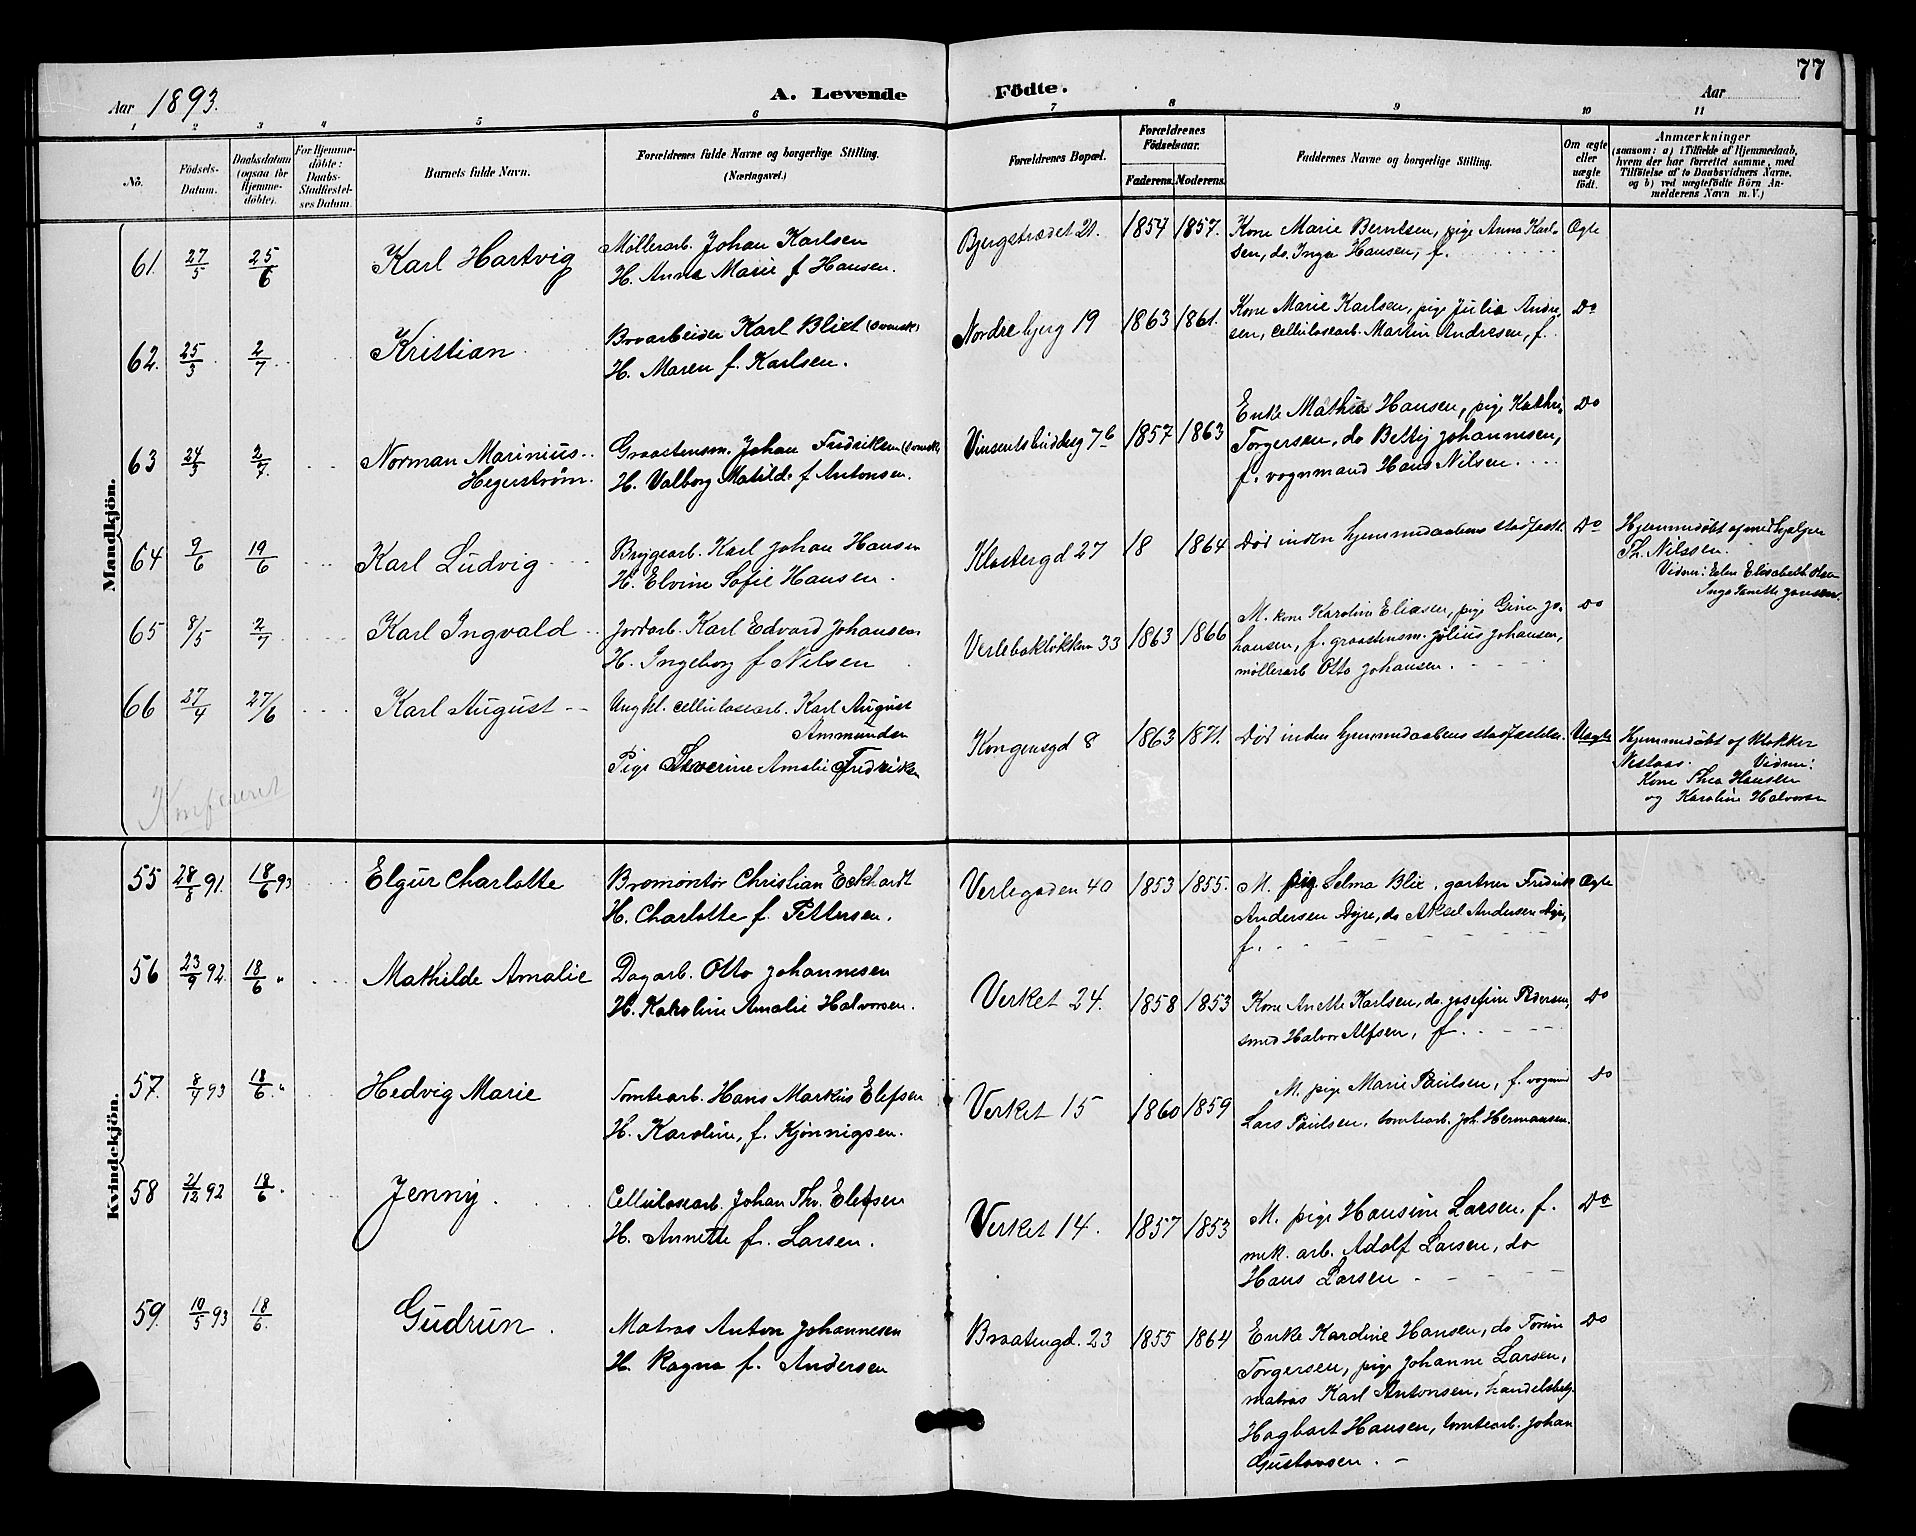 77
Aar 1893.
A. Levende Födte.
Aar
1 2 3 4 5 6 7 8 9 10 11
No.
Födsels-
Datum.
Daabsdatum
(ogsaa for
Hjemme-
döbte).
For Hjemme-
döbte:
Daabs-
Stadfæstel-
ses Datum.
Barnets fulde Navn.
Forældrenes fulde Navne og borgerlige Stilling.
(Næringsvei.)
Forældrenes Bopæl.
Forældrenes
Födselsaar.
Faderens. Moderens.
Faddernes Navne og borgerlige Stilling.
Om ægte
eller
uægte
födt.
Anmærkninger
(saasom: a) i Tilfælde af Hjemmedaab,
hvem der har forrettet samme, med
Tilföielse af to Daabsvidners Navne,
og b) ved uægtefödte Börn An-
melderens Navn m. V.)
Mandkjön.
61. 27/5 25/6 Karl Hartvig
Møllerarb. Johan Karlsen
H. Anna Marie f Hansen.
Bjergstrædet 21. 1854 1857.
Kone Marie Berntsen, pige Anna Karl-
sen, do. Inga Hansen, f.
Ægte
62. 25/3 2/7 Kristian
Brvarbeider Karl Blixt (svensk)
H. Maren f. Karlsen.
Nordrebjerg 19 1863 1861.
Kone Marie Karlsen, pige Julia Andre-
sen, cellulosearb. Martin Andresen, f.
Do
63 24/3 2/7 Norman Marinius
Hegerstrøm.
Graastensm. Johan Fredriksen (svensk)
H. Valborg Matilde f Antonsen.
Vinsentsbudveg 7b 1857 1863
Enke Mathia Hansen, pige Kathri.
Torgersen, do Betty Johannesen,
f. vognmand Hans Nilsen.
Do
64 9/6 19/6 Karl Ludvig
Brygearb. Karl Johan Hansen
H. Elvine Sofie Hansen.
Klostergd 27 18 1864
Død inden hjemmedaabens stadfæst.
Do
Hjemmedøbt af medhjelper
Th. Nilssen.
Vidner: Elen Elisabeth
Inga Janette Jonsen.
65 8/5 2/7 Karl Ingvald
Jordarb. Karl Edvard Johansen
H. Ingeborg f Nilsen
Verlebakløkken 33 1863 1866
M. kone Karoline Eliasen, pige Gina Jo-
hansen, f. graastensm. Julius Johansen,
møllerarb Otto Johansen.
Do
66 27/4 27/6 Karl August
Ungkl. cellulosearb. Karl August
Ammundsen
Pige Severine Amalie Fredriksen
Kongensgd 8 1863 1871.
Død inden hjemmedaabens stadfæstelse.
Uægte
Hjemmedøbt af klokker
Nestaas. Vidner:
Kone Thea Hansen
og Karoline Halvorsen
Konfereret
Kvindekjön.
55 28/8 91. 18/6 93 Elgur Charlotte
Bromontör Christian Eckhardt
H. Charlotte f. Pettersen.
Verlegaden 40 1853 1855.
M. pige Selma Blix, gartner Fredrik
Andersen Dyre, do Aksel Andersen Dyre,
f.
Ægte
56 23/9 92. 18/6 " Mathilde Amalie
Dagarb. Otto Johannesen
H. Karoline Amalie Halvorsen.
Verket 24. 1858 1853
Kone Anette Karlsen, do. Josefine Pedersen,
smed Halvor Alfsen, f.
Do
57. 8/4 93 18/6 " Hedvig Marie
Tomtearb. Hans Markus Elefsen
H. Karoline, f. Kjønnigsen.
Verket 15 1860 1859
M. pige Marie Paulsen, f. vognmd
Lars Paulsen, tomtearb. Joh. Hermansen.
Do
58 21/12 92 18/6 " Jenny
Cellulosearb. Johan Thv. Elefsen
H. Annette f. Larsen.
Verket 14. 1857 1853
M. pige Hansine Larsen, f.
mek. arb. Adolf Larsen, do
Hans Larsen
Do
59. 10/5 93 18/6 Gudrun.
Matros Anton Johannesen
H. Ragna f. Andersen
Braatengd. 23 1855 1864
Enke Karoline Hansen, do Torine
Torgersen, pige Johanne Larsen,
matros Karl Antonsen, handelsbetj.
Hagbart Hansen, tomtearb. Johan
Gustavsen.
Do